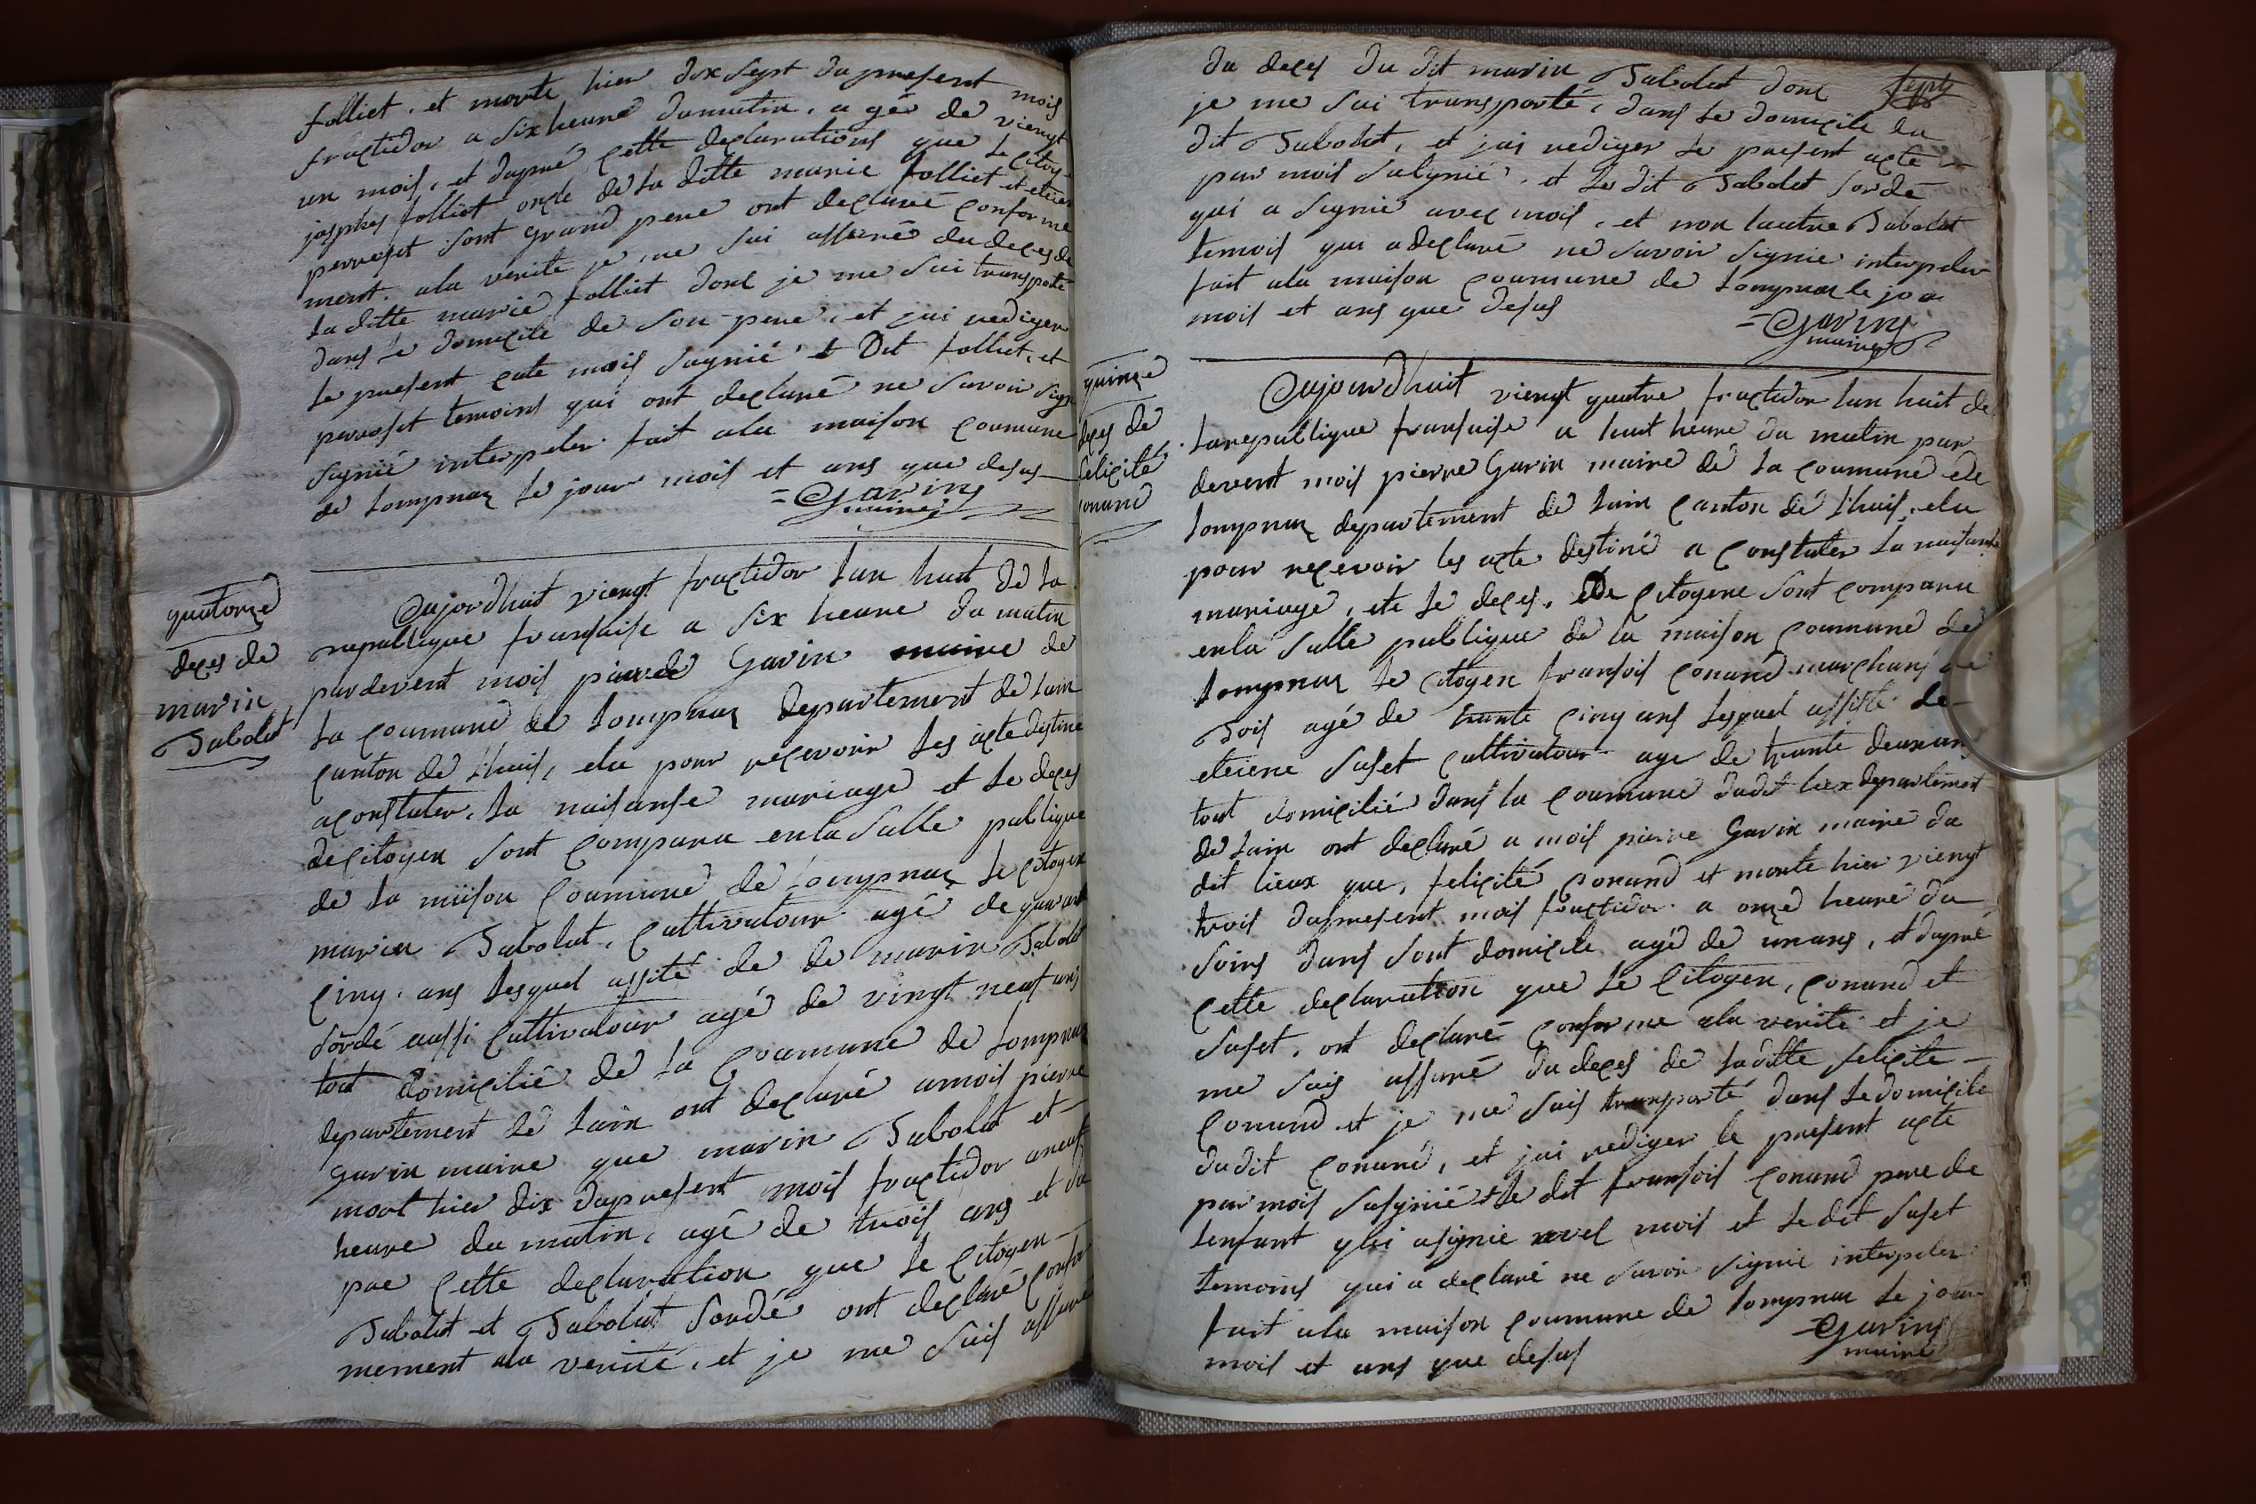 folliet. et morte hier dix sept du present mois
fructidor a six heure du matin. a gé de viengt
un mois, et dapré cette declarations que le citoy
josphes folliet oncle de la ditte marie folliet et etiene
perroset sont grand pere ont declaré conforme
ment. ala verite je me sui assuré du deces de
la ditte marie folliet donc je me sui transporté
dans le domicile de son pere, et jai rediger
le present acte mois sugnié, et Dit folliet, et
perroset temoins qui ont declaré ne savoir sign
signié interpeler. fait ala maison coumune
de Lompnaz le jour mois et ans que desus
= Gavins
maire
quatorze
deces de
marin
Tabolet
Aujordhuit viengt fructidor lan huit de la
republique fransaise a six heure du matin
pardevent mois pierre Gavin maire de
la coumune de Lompnaz departement de lain
canton de Lhuis, elu pour recevoir les acte destiné
a constater, la naisanse mariage et le deces
de citoyen sont comparu en la salle publique
de la maison coumune de Lompnaz le citoyen
marin Tabolet, cultivatour agé de quarante
cinq. ans lesquel assité de de marin Tabolet
sordé aussi cultivatour agé de vingt neuf ans
tout domicilié de la coumune de Lompnaz
departement de lain ont declaré a mois pierre
gavin maire que marin Tabolet et
mort hier dix du present mois fructidor a neuf
heure du matin, agé de trois ans et da
pre cette declaration que le citoyen
Tabolet et Tabolet sordé ont declaré confor
mement ala verité, et je me suis assuré
sept
du deces du dit marin Tabolet donc
je me sui transporté, dans le domicile du
dit Tabolet, et jai rediger le present acte
par mois subignié, et le dit Tabolet sordé
qui a signié avec mois, et non lautre Tabolet
temois qui a declaré ne savoir signie interpeler
fait ala maison coumune de Lompnaz le jour
mois et ans que desus
= Gavins
maire
quinze
deces de
felicité
conand
Aujourdhuit viengt quatre fructidor lan huit de
la republique fransaise a huit heure du matin par
devent mois pierre Gavin maire de la coumune de
Lompnaz departement de lain canton de Lhuis, elu
pour recevoir les acte destiné a constater la naisanse
mariage, ete le deces, de citogene sont comparu
en la salle publique de la maison coumune de
Lompnaz le citogen fransois conand marchans de
Bois agé de trante cinq ans lesquel assiste de
eteiene suset cultivatour age de trante deux ans
tout domicilié dans la coumune dudit lieux departement
de lain ont declaré a mois pierre Gavin maire du
dit lieux que, felicité conand et morte hier viengt
trois du present mois fructidor a onze heure du
soirs dans sont domicile agé de un ans, et dapré
cette declaration que le citogen, conand et
suset, ont declaré conforme ala verité et je
me suis assuré du deces de laditte felicite
conand et je me suis transporté dans le domicile
dudit conand, et jai rediger le present acte
par mois susignié et le dit fransois conand pere de
lenfant qui a signie avec mois et le dit suset
temoins qui a declaré ne savoir signié interpeler
fait ala maison coumune de Lompnaz le jour
mois et ans que desus
= Gavins
maire